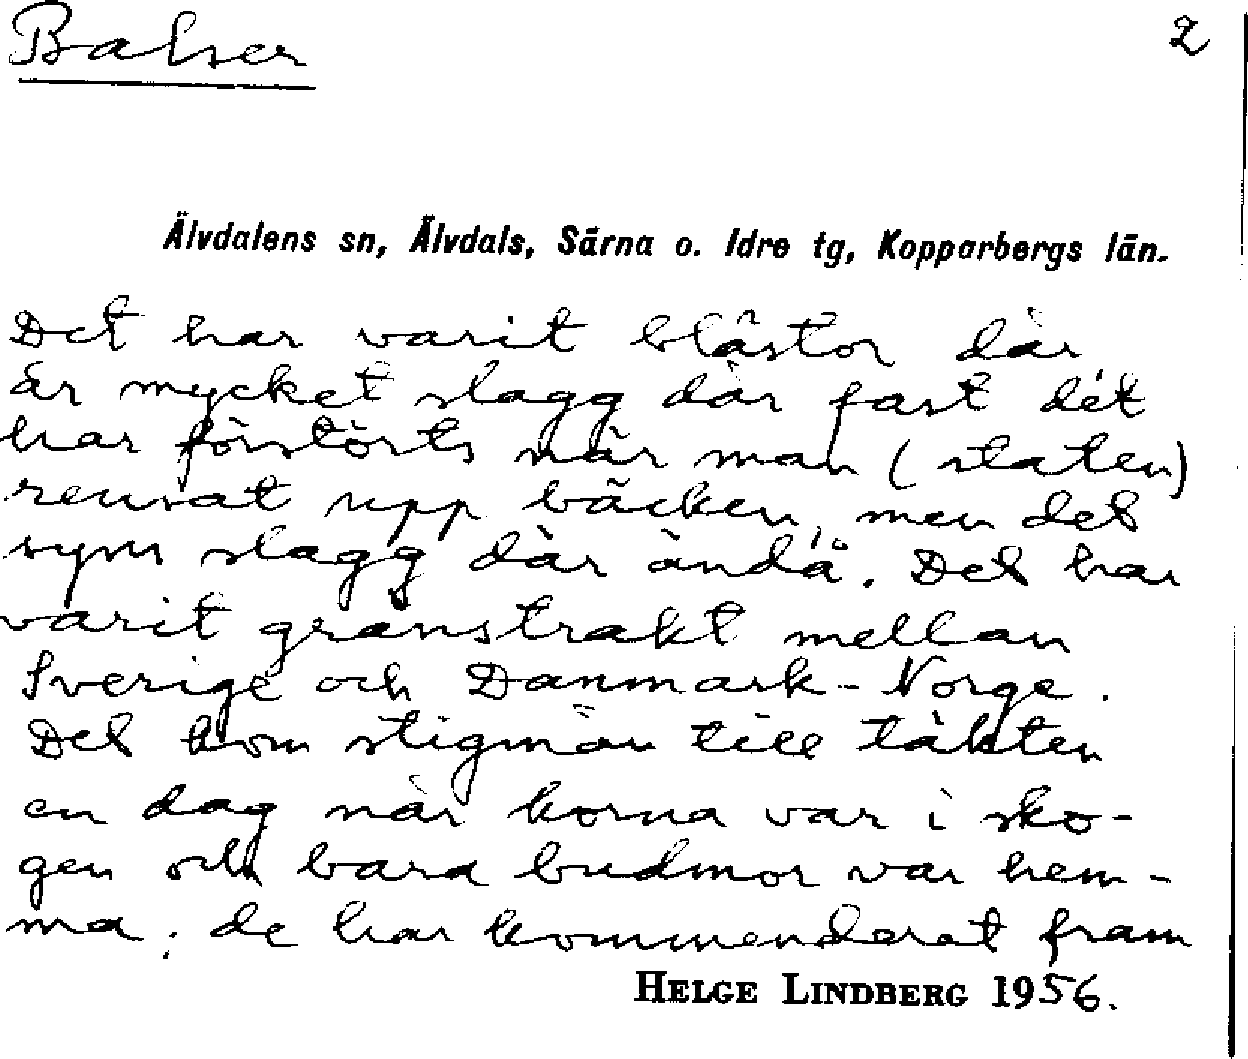 Balser
2
Älvdalens sn, Älvdals, Särna o. Idre tg, Kopparbergs län.
Det har varit blästor där
är mycket slagg där fast dét
har förstörts när man (staten)
rensat upp bäcken, men det
syns slagg där ändå. Det har
varit gränstrakt mellan
Sverige och Danmark-Norge.
Det kom stigmän till täkten
en dag när korna var i sko-
gen och bara budmor var hem-
ma; de har kommenderat fram
HELGE LINDBERG 1956.